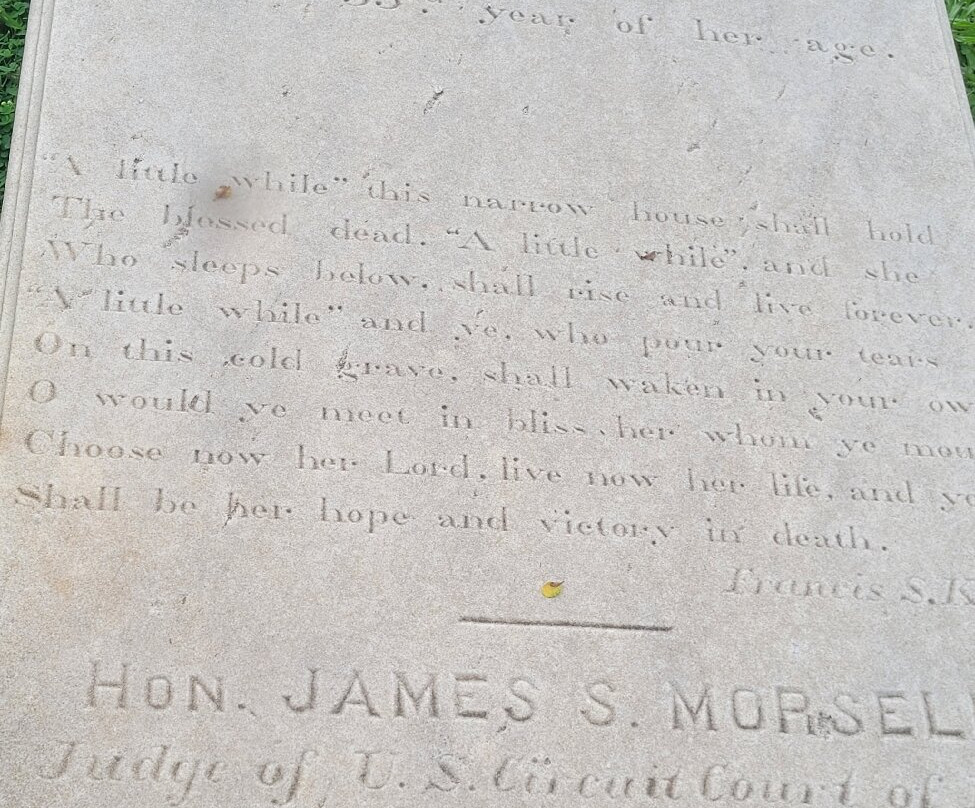 year of her age.
"A little while" this narrow house, shall hold
The blessed dead. "A little while", and she
Who sleeps below, shall rise and live forever.
"A little while" and ye, who pour your tears
On this cold grave, shall waken in your ow
O would ye meet in bliss, her whom ye mou
Choose now her Lord, live now her life, and yo
Shall be her hope and victory in death.
Francis S. K
HON. JAMES S. MORSEL
Judge of U. S. Circuit Court of